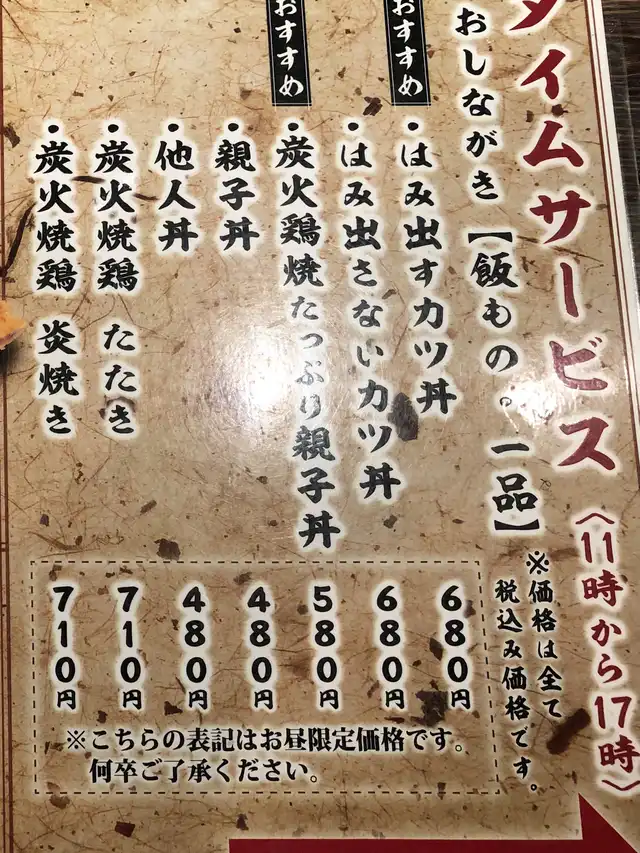 タイムサービス〈11時から17時〉
おしながき【飯もの。一品】
※価格は全て
税込み価格です。
おすすめ
・はみ出すカツ丼 680円
おすすめ
・はみ出さないカツ丼 680円
・炭火鶏焼たっぷり親子丼 580円
・親子丼 480円
・他人丼 480円
・炭火焼鶏 たたき 710円
・炭火焼鶏 炎焼き 710円
※こちらの表記はお昼限定価格です。
何卒ご了承ください。